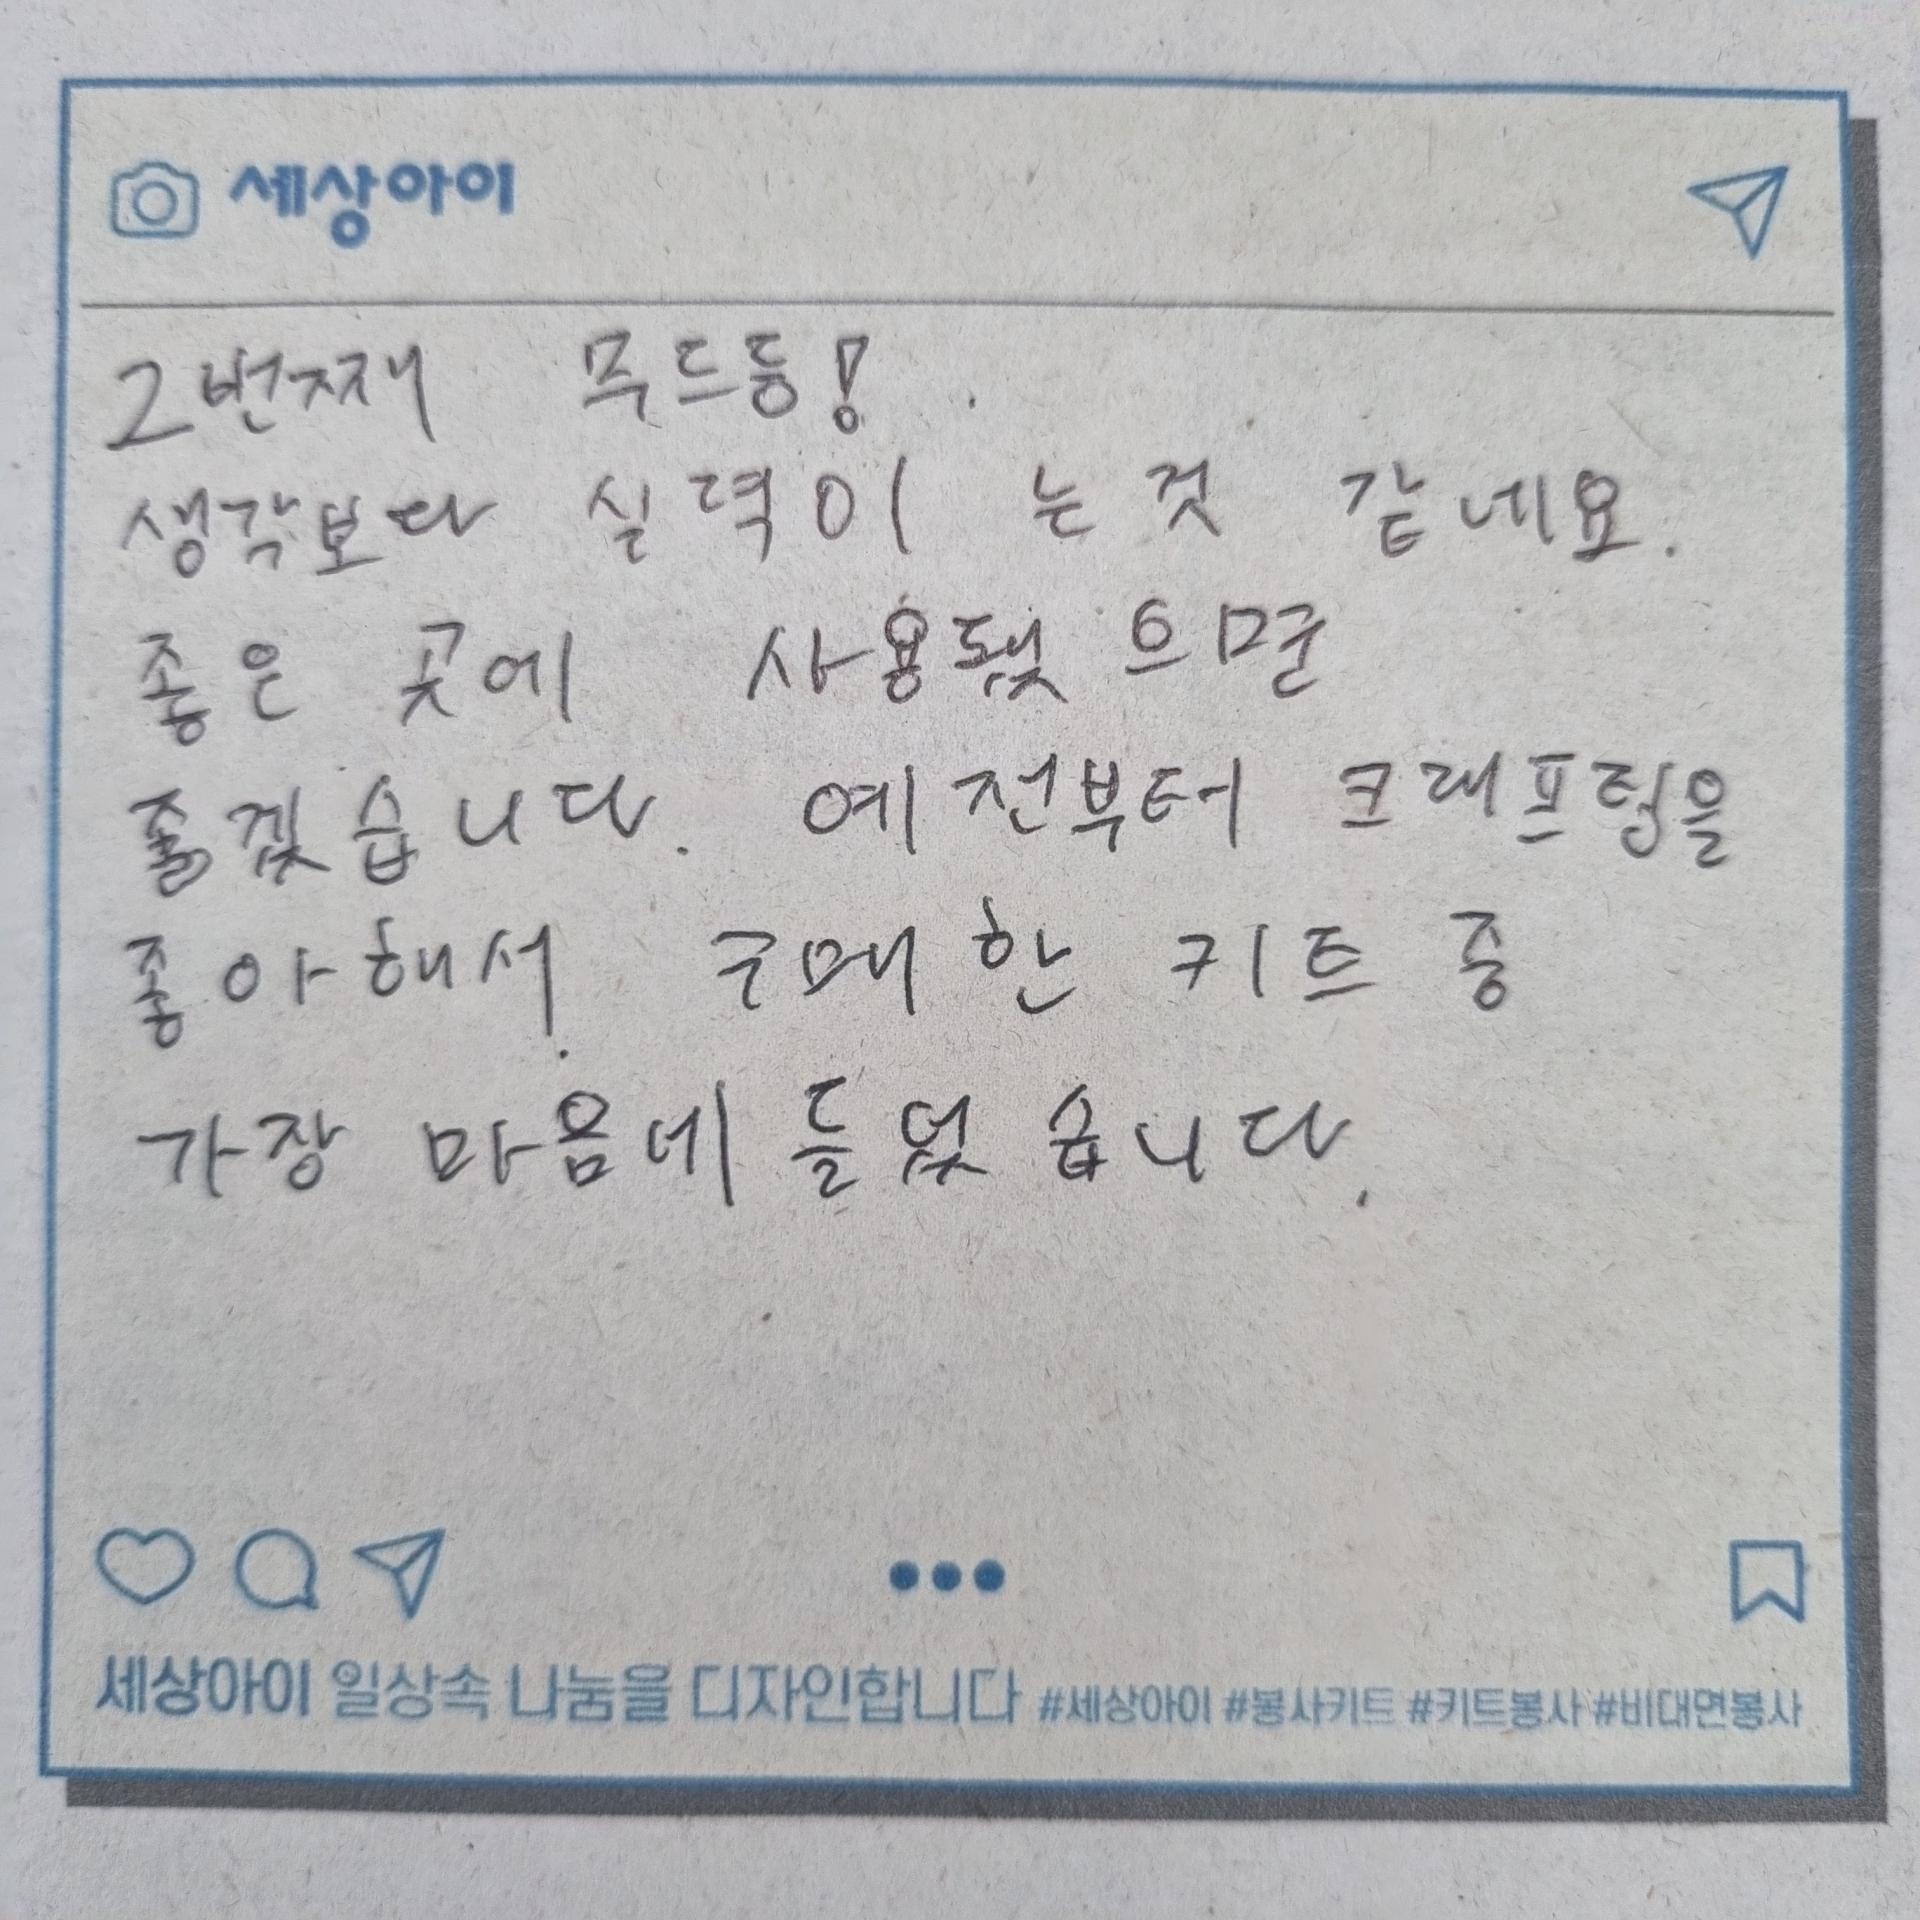 세상아이
2번째 무드등!
생각보다 실력이 는것 같네요.
좋은 곳에 사용됐으면
좋겠습니다. 예전부터 크래프팅을
좋아해서. 구매한 키트 중
가장 마음네 들었습니다.
세상아이 일상속 나눔을 디자인합니다 #세상아이 #봉사키트 #키트봉사 #비대면봉사